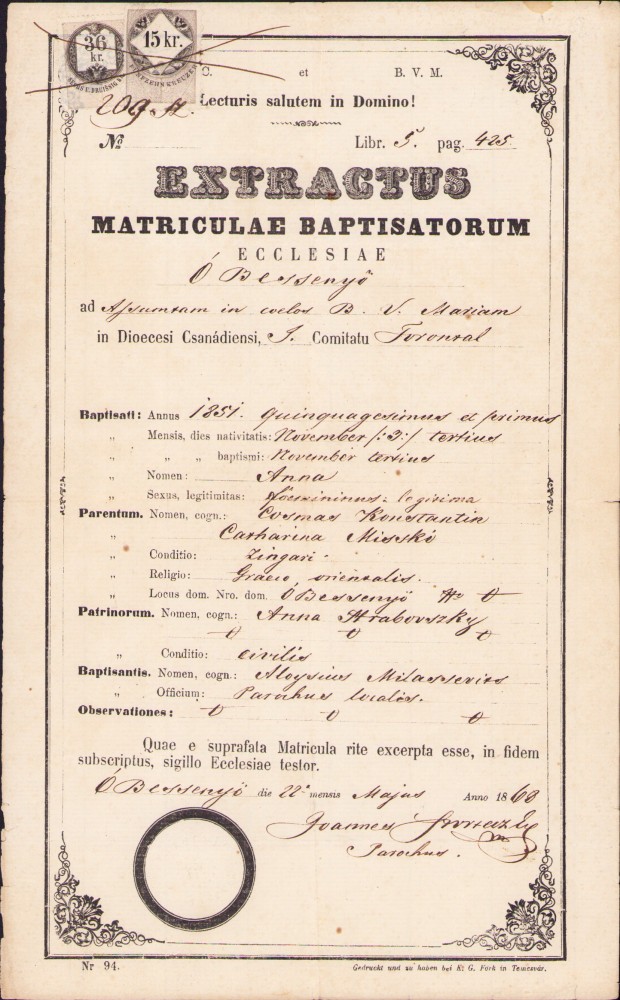 36
kr.
15 kr.
C. et B. V. M.
209
Lecturis salutem in Domino!
№ Libr. 5. pag. 425
EXTRACTUS
MATRICULAE BAPTISATORUM
ECCLESIAE
Ó Bessenyö
ad Assumtam in coelos B. V. Mariam
in Dioecesi Csanádiensi, I. Comitatu Torontal
Baptisati: Annus 1851. quinquagesimus et primus
„ Mensis, dies nativitatis: November /:3:/ tertius
„ „ „ baptismi: November tertius
„ Nomen: Anna
„ Sexus, legitimitas: foemininus: legitima
Parentum. Nomen, cogn.: Cosmas Konstantin
„ Catharina Misski
„ Conditio: Zingari
„ Religio: Graeco orientalis.
„ Locus dom. Nro. dom. OBessenyö
Patrinorum. Nomen, cogn.: Anna Hrabovszky
„ Conditio: civilis
Baptisantis. Nomen, cogn.: Aloysius
„ Officium: Parochus localis.
Observationes:
Quae e suprafata Matricula rite excerpta esse, in fidem
subscriptus, sigillo Ecclesiae testor.
ÓBessenyö die 22a mensis Majus Anno 1868
Joannes
Parochus.
Nr 94. Gedruckt und zu haben bei E. G. Fork in Temesvár.